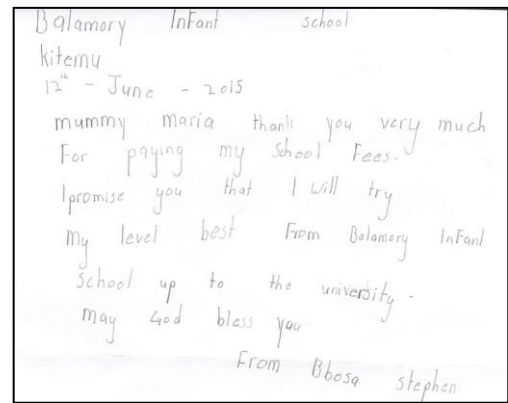 Balamory Infant school
kitemu
12th - June - 2015
mummy maria thank you very much
For paying my School Fees.
I promise you that I will try
My level best From Balamory Infant
School up to the university.
may God bless you
From Bbosa stephen